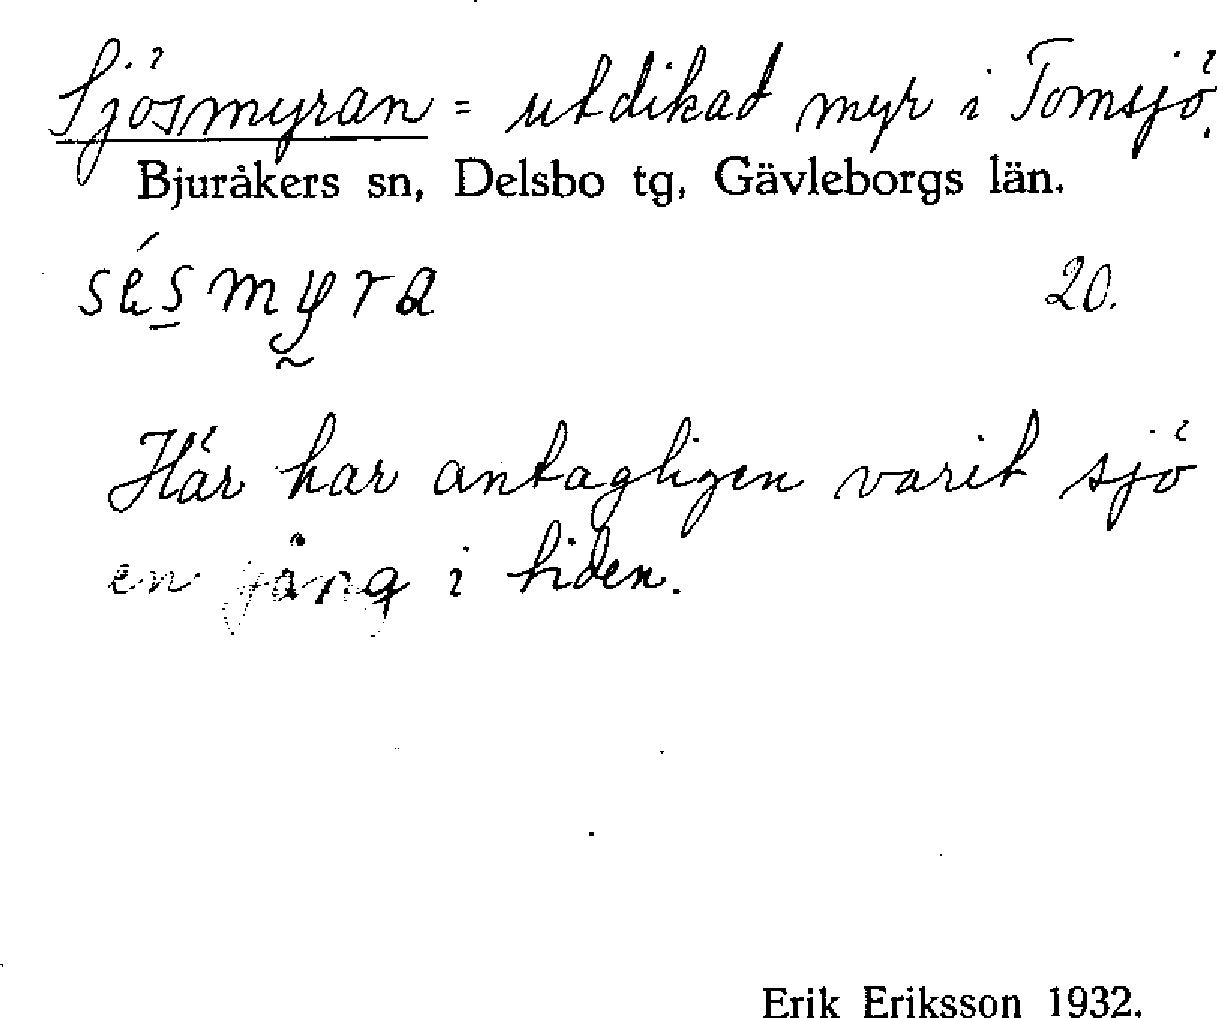 Sjösmyran = utdikad myr i Tomsjö.
Bjuråkers sn, Delsbo tg, Gävleborgs län.
20.
Här har antagligen varit sjö
en gång i tiden.
Erik Eriksson 1932.